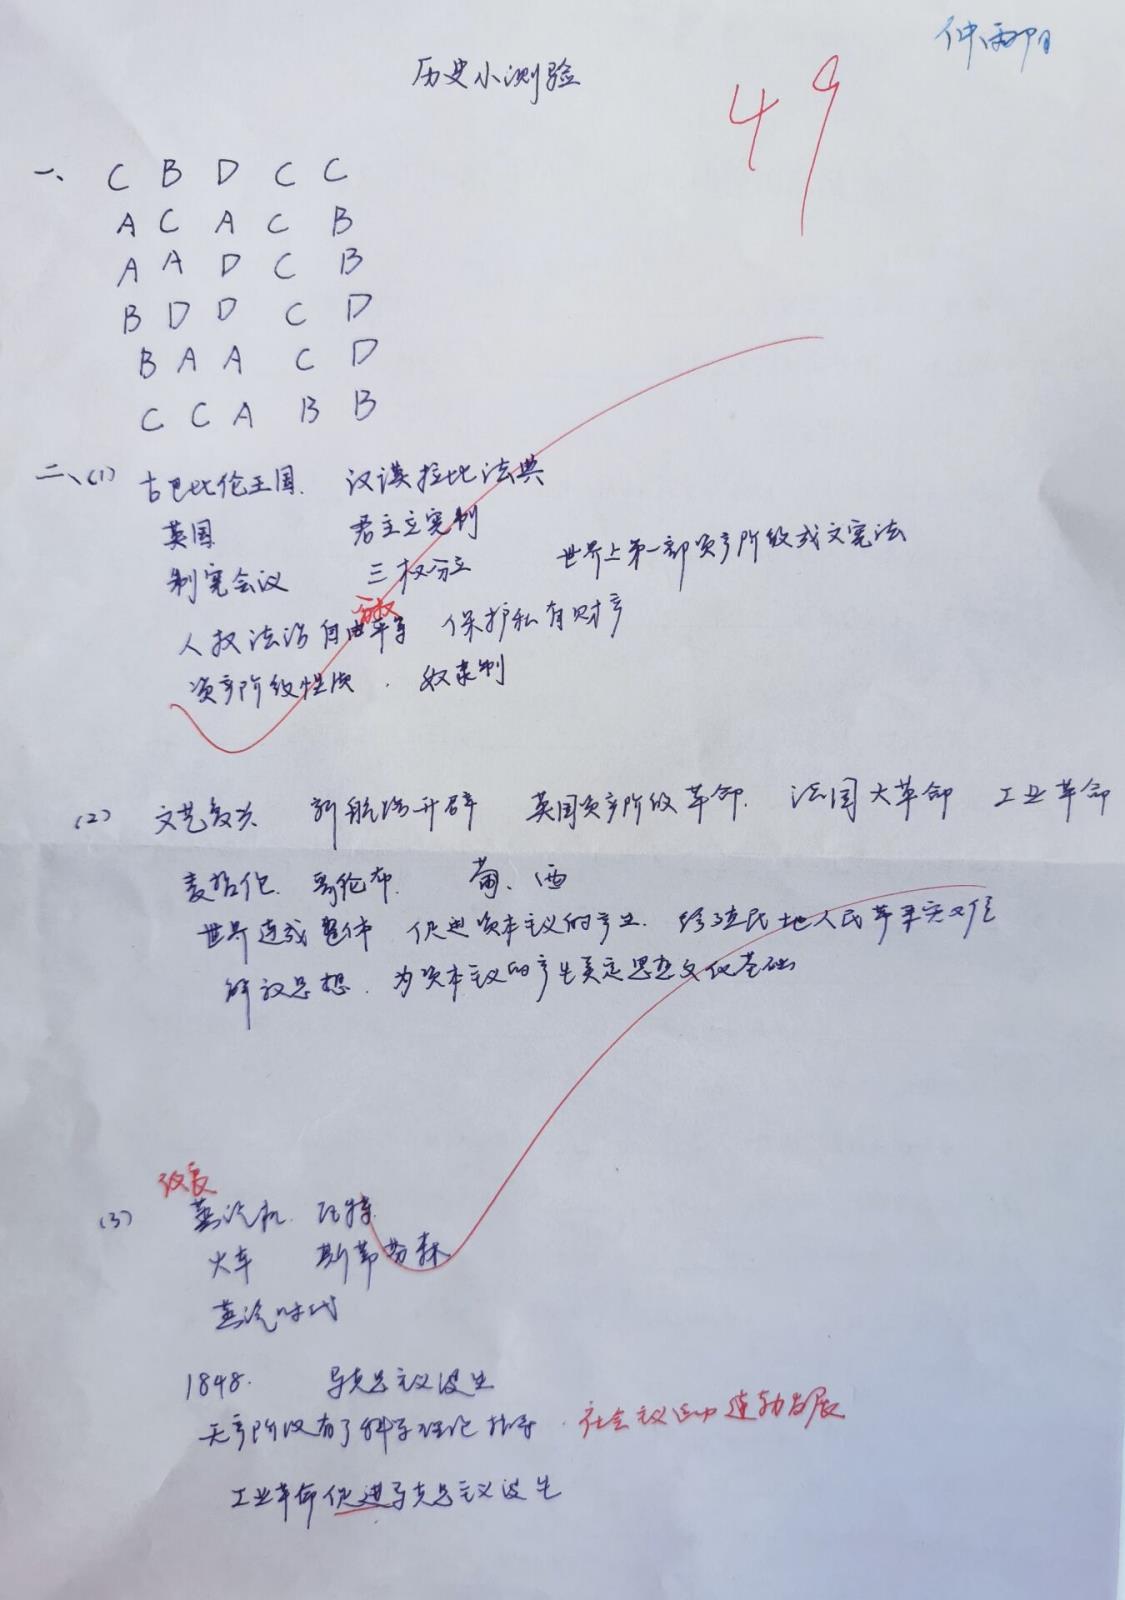 历史小测验
49
一、C B D C C
A C A C B
A A D C B
B D D C D
B A A C D
C C A B B
二、(1) 古巴比伦王国. 汉谟拉比法典
英国 君主立宪制
制宪会议 三权分立 世界上第一部资产阶级成文宪法
分权
人权 法治 自由 平等 保护私有财产
资产阶级性质. 奴隶制
(2) 文艺复兴 新航路开辟 英国资产阶级革命. 法国大革命 工业革命
麦哲伦. 哥伦布. 葡、西
世界连成整体 促进资本主义的产生. 给殖民地人民带来灾难
解放思想. 为资本主义的产生奠定思想文化基础
改良
(3) 蒸汽机. 瓦特.
火车 斯蒂芬森
蒸汽时代
1848. 马克思主义诞生
无产阶级有了科学理论指导. 社会主义运动蓬勃发展
工业革命促进马克思主义诞生